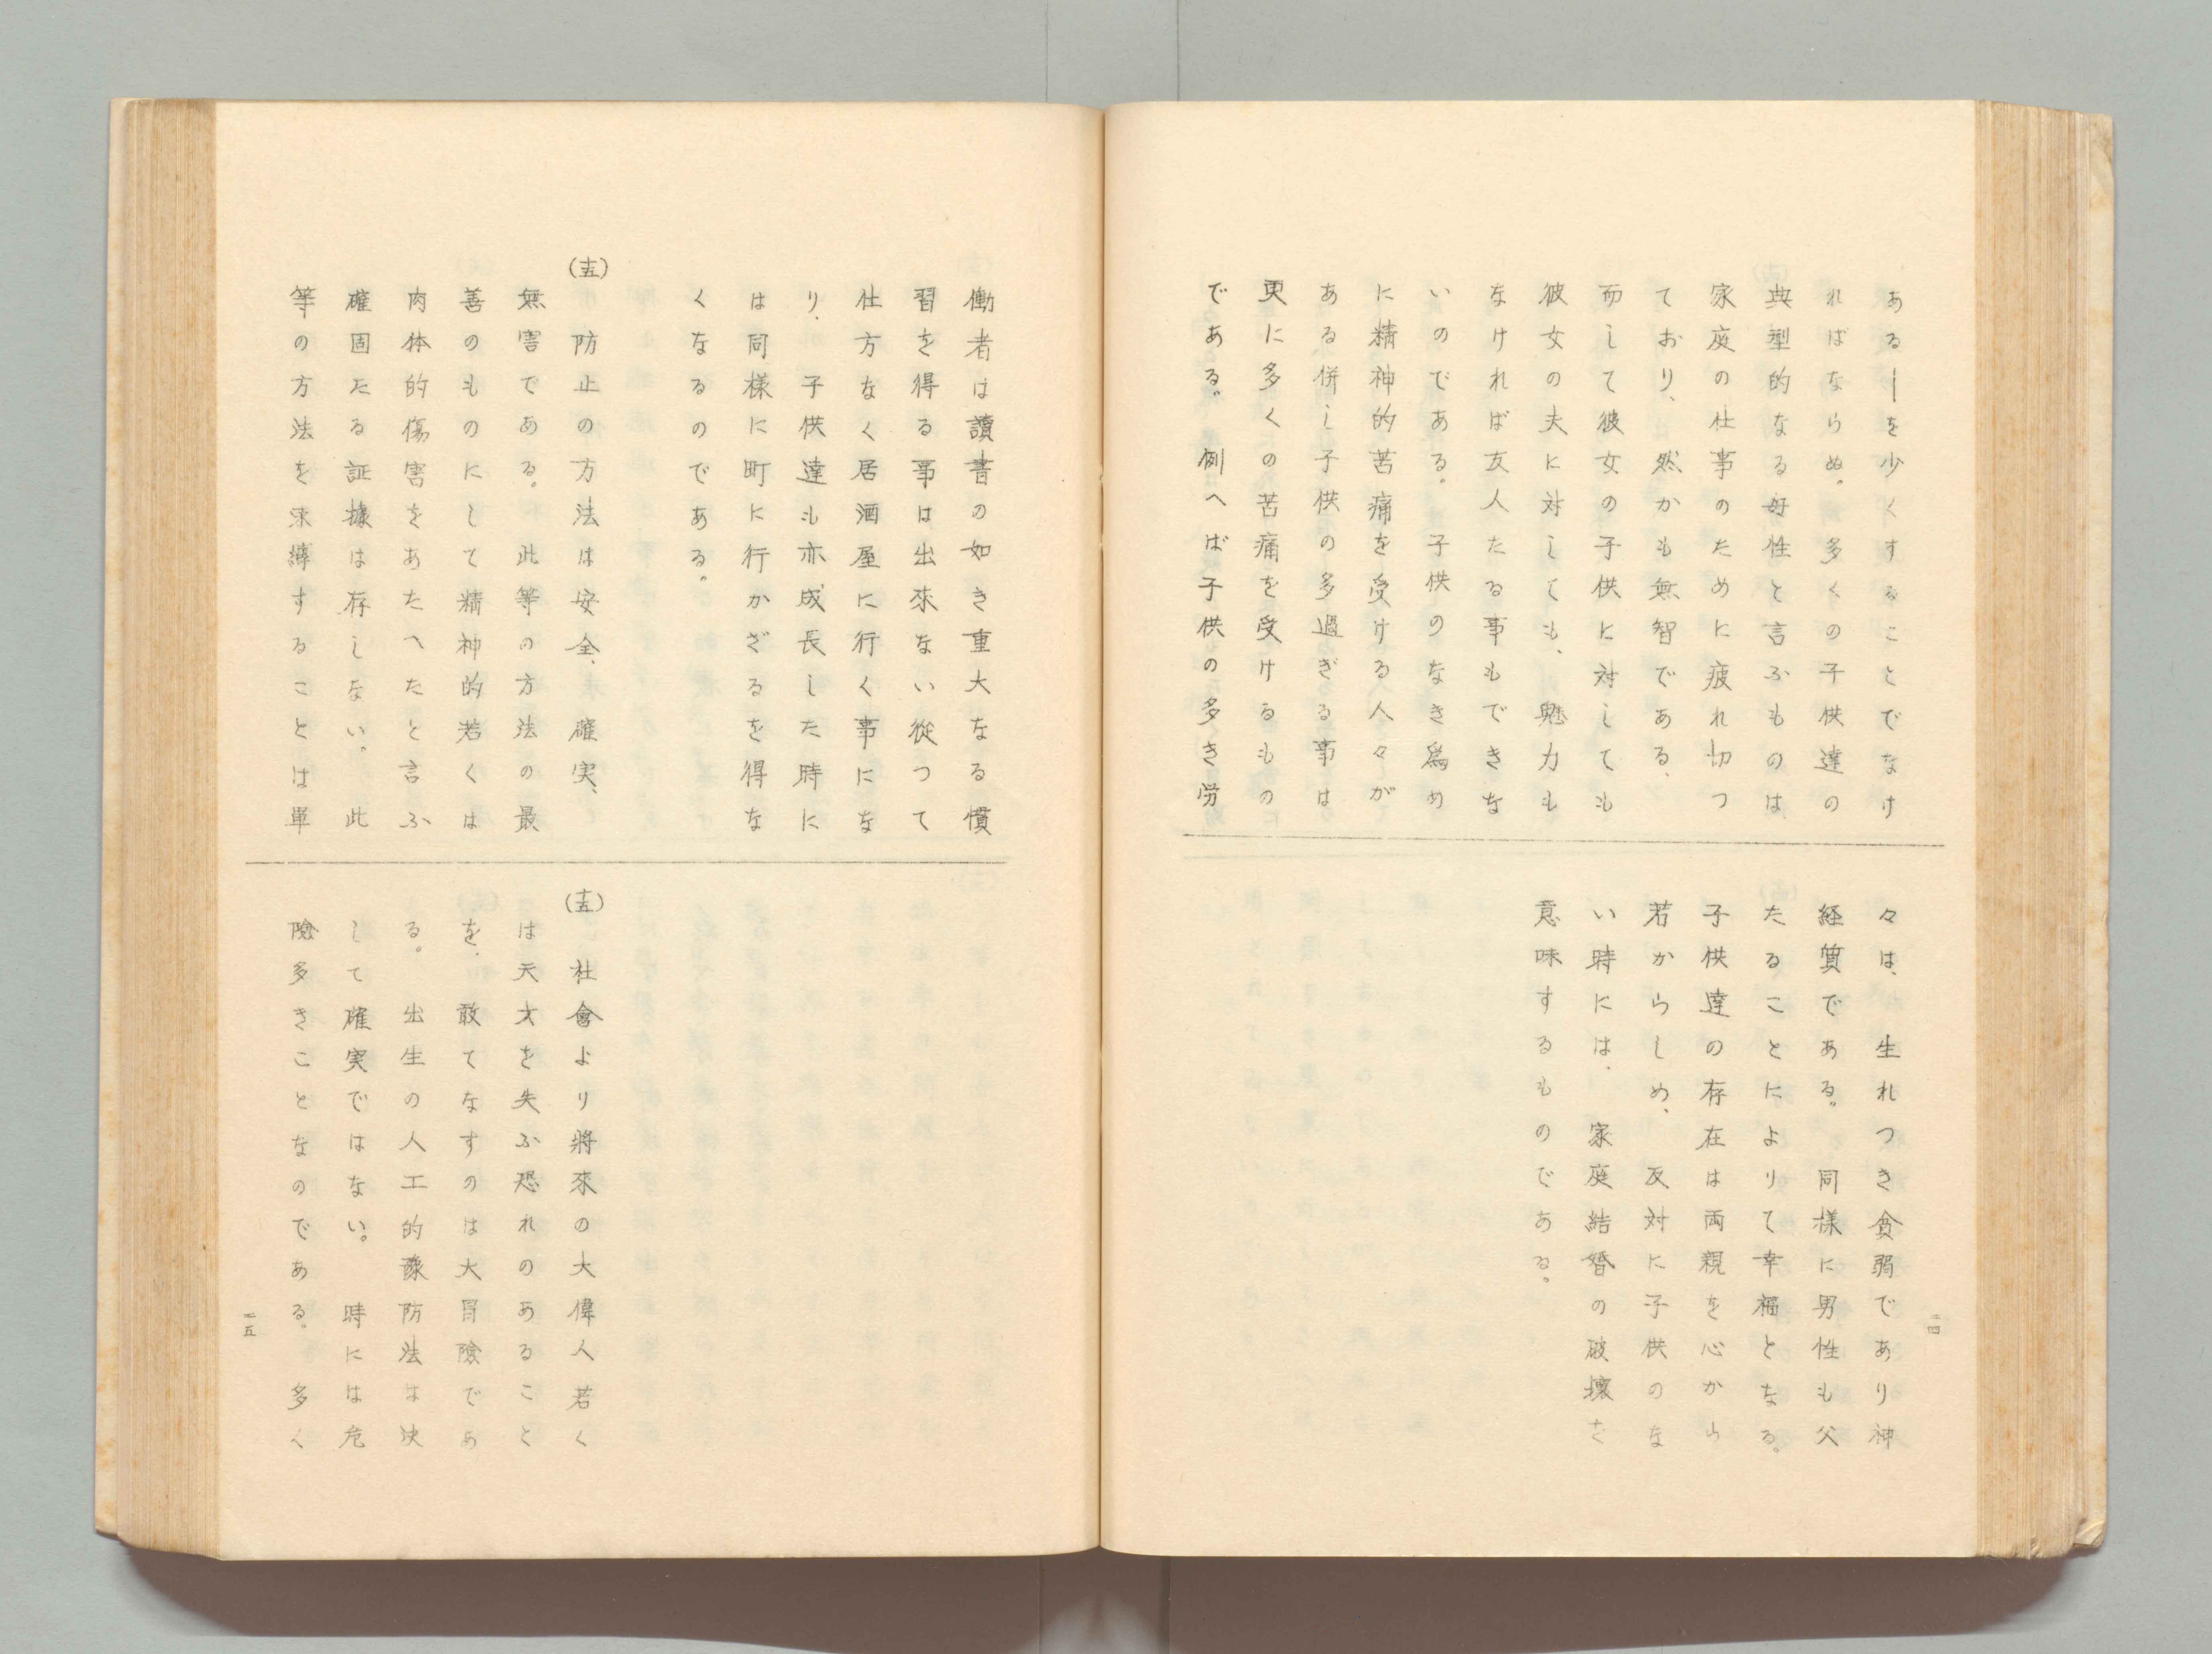 あるーを少くすることでなけ
ればならぬ。多くの子供達の
典型的なる母性と言ふものは
家庭の仕事のために疲れ切つ
ており、然かも無智である、
而して彼女の子供に対しても
彼女の夫に対しても、魅力も
なければ友人たる事もできな
いのである。子供のなき為め
に精神的苦痛を受ける人々が
ある併し子供の多過ぎる事は
更に多くの苦痛を受けるもの
である。例へば子供の多き労
々は、生れつき貧弱であり神
経質である。同様に男性も父
たることによりて幸福となる。
子供達の存在は両親を心から
若からしめ、反対に子供のな
い時には、家庭結婚の破壊を
意味するものである。
二四
働者は讀書の如き重大なる慣
習を得る事は出來ない從つて
仕方なく居酒屋に行く事にな
り、子供達も亦成長した時に
は同様に町に行かざるを得な
くなるのである。
(十五)防止の方法は安全、確実、
無害である。此等の方法の最
善のものにして精神的若くは
肉体的傷害をあたへたと言ふ
確固たる証據は存しない。此
等の方法を束縛することは単
(十五)社會より將來の大偉人若く
は天才を失ふ恐れのあること
を、敢てなすのは大冒險であ
る。出生の人工的豫防法は決
して確実ではない。時には危
險多きことなのである。多く
二五